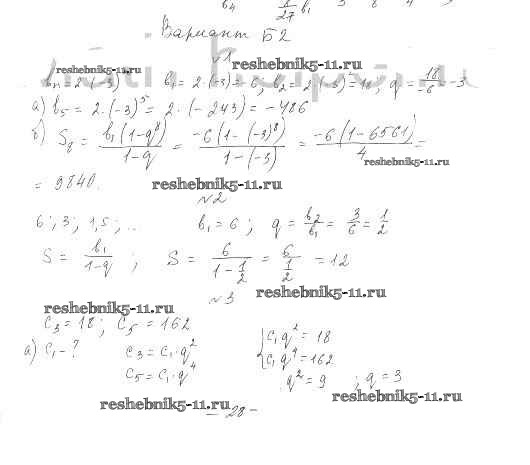 b₄ 8/27 b₁ 3 8 4
Вариант Б2
№1
reshebnik5-11.ru
reshebnik5-11.ru
bₙ = 2·(-3) b₁ = 2·(-3) = -6; b₂ = 2·(-3) = 18; q = 18/-6 = -3
а) b₅ = 2·(-3)⁵ = 2·(-243) = -486
б) S₈ = b₁(1-q⁸)/1-q = -6(1-(-3)⁸)/1-(-3) = -6(1-6561)/4 =
reshebnik5-11.ru
= 9840.
reshebnik5-11.ru
№2
6; 3; 1,5; ... b₁ = 6; q = b₂/b₁ = 3/6 = 1/2
S = b₁/1-q ; S = 6/1-1/2 = 6/1/2 = 12
reshebnik5-11.ru
№3
reshebnik5-11.ru
c₃ = 18; c₅ = 162
а) c₁ - ? c₃ = c₁·q² { c₁q² = 18
c₅ = c₁·q⁴ c₁q⁴ = 162
q² = 9 ; q = 3
reshebnik5-11.ru
reshebnik5-11.ru
- 28 -